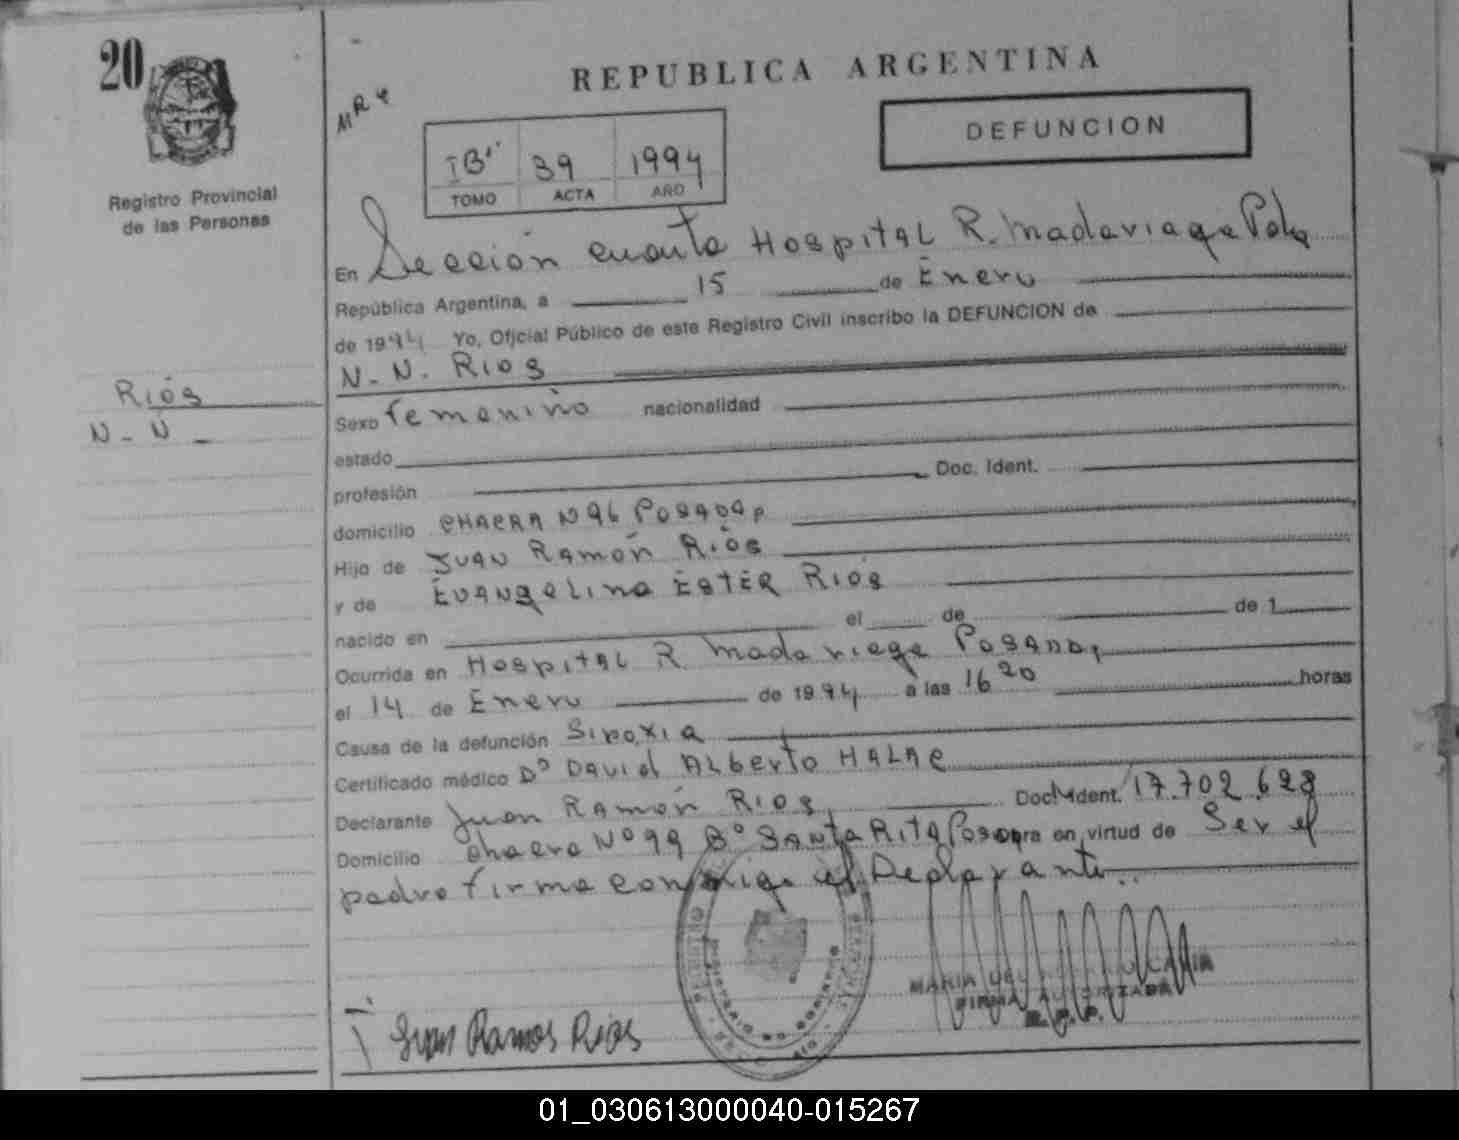 20
REPUBLICA ARGENTINA
DEFUNCION
39 1994
TOMO ACTA AÑO
Registro Provincial
de las Personas
En Sección cuarta Hospital R. Madariaga
República Argentina, a 15 de Enero
de 1994 Yo, Oficial Público de este Registro Civil inscribo la DEFUNCION de
N. N. Rios
Riós
N. N.
Sexo Femenino nacionalidad
estado
profesión Doc. Ident.
domicilio CHACRA N 96 Posadas
Hijo de JUAN RAMÓN RÍOS
y de EVANGELINA ESTER RIOS
nacido en el de de 1
Ocurrida en HOSPITAL R Madariaga POSADAS
el 14 de Enero de 1994 a las 16 20 horas
Causa de la defunción Sipoxia
Certificado médico Dº DAVID ALBERTO
Declarante Juan RAMÓN RIOS Doc. Ident. 17.702.628
Domicilio Chacra Nº 99 Bº SANTA RITA Posadas en virtud de Ser el
padre firma conmigo el Declarante.
MARIA
FIRMA AUTORIZADA
R. P. P.
Juan Ramos Rios
01_030613000040-015267